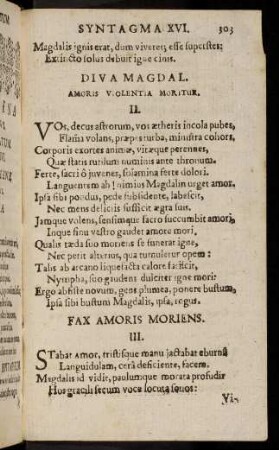 SYNTAGMA XVI. 303
Magdalis ignis erat, dum viveret; esse superstes:
Extincto solus debuit igne cinis.
DIVA MAGDAL.
AMORIS VIOLENTIA MORITUR.
II.
VOs, decus astrorum, vos ætheris incola pubes,
Flassu volans, præpes turba, ministra cohors,
Corporis exortes animæ, vitæque perennes,
Quæ statis rutilum numinis ante thronum.
Ferte, sacri ô juvenes, solamina ferte dolori.
Languentem ah! nimius Magdalin urget amor.
Ipsa sibi pondus, pede subsidente, labescit,
Nec mens deliciis sufficit ægra suis.
Jamque volens, sensimque sacro succumbit amori,
Inque sinu vestro gaudet amore mori.
Qualis tæda suo moriens se funerat igne,
Nec perit alterius, qua tumuletur opem:
Talis ab arcano liquefacta calore fatiscit,
Nympha, suo gaudens dulciter igne mori
Ergo abliste novum, gens plumea, ponere bustum,
Ipsa sibi bustum Magdalis, ipsa, rogus.
FAX AMORIS MORIENS.
III.
STabat Amor, tristisque manu jactabat eburnâ
Languidulam, cerâ deficiente, facem.
Magdalis id vidit, paulumque morata profudit
Hos gracili secum voce locuta sonos: